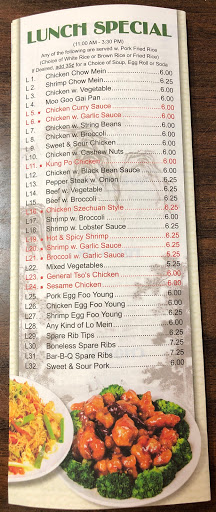 LUNCH SPECIAL
(11:00 AM - 3:30 PM)
Any of the following are served w. Pork Fried Rice
(Choice of White Rice or Brown Rice or Fried Rice)
If Desired, add 35¢ for a Choice of Soup, Egg Roll or Soda
L 1. Chicken Chow Mein 6.00
L 2. Shrimp Chow Mein 6.25
L 3. Chicken w. Vegetable 6.00
L 4. Moo Goo Gai Pan 6.00
L 5. Chicken Curry Sauce 6.00
L 6. Chicken w. Garlic Sauce 6.00
L 7. Chicken w. String Beans 6.00
L 8. Chicken w. Broccoli 6.00
L 9. Sweet & Sour Chicken 6.00
L10. Chicken w. Cashew Nuts 6.00
L11. Kung Po Chicken 6.00
L12. Chicken w. Black Bean Sauce 6.00
L13. Pepper Steak w. Onion 6.25
L14. Beef w. Vegetable 6.25
L15. Beef w. Broccoli 6.25
L16. Chicken Szechuan Style 6.25
L17. Shrimp w. Broccoli 6.00
L18. Shrimp w. Lobster Sauce 6.25
L19. Hot & Spicy Shrimp 6.25
L20. Shrimp w. Garlic Sauce 6.25
L21. Broccoli w. Garlic Sauce 6.25
L22. Mixed Vegetables 6.25
L23. General Tso's Chicken 6.00
L24. Sesame Chicken 6.00
L25. Pork Egg Foo Young 6.00
L26. Chicken Egg Foo Young 6.00
L27. Shrimp Egg Foo Young 6.25
L28. Any Kind of Lo Mein 6.25
L29. Spare Rib Tips 6.25
L30. Boneless Spare Ribs 7.25
L31. Bar-B-Q Spare Ribs 7.25
L32. Sweet & Sour Pork 6.00